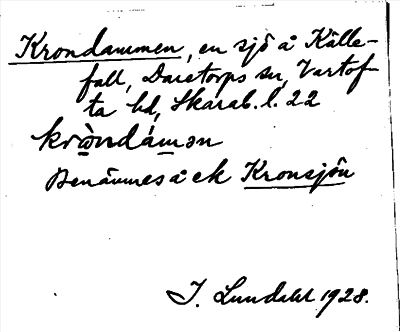 Krondammen, en sjö å Källe-
fall, Daretorps sn, Vartof-
ta hd, Skarab. l. 22
kròndámən
Benämnes å ek Kronsjön
I. Lundahl 1928.